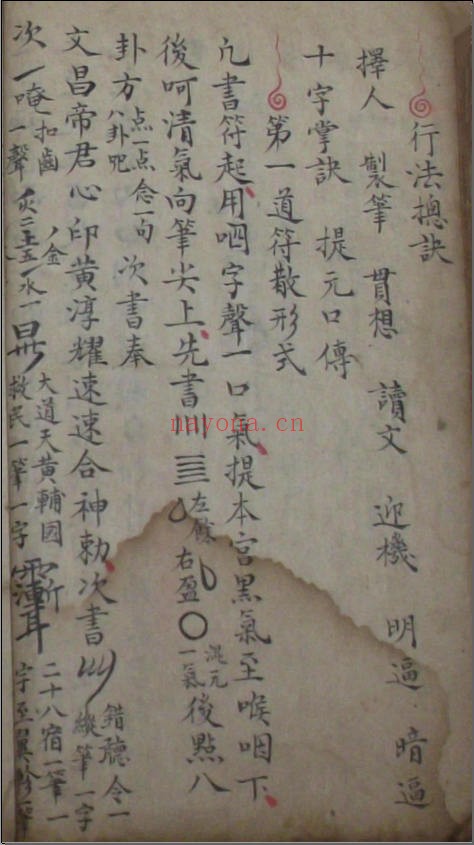 行法總訣
擇人 製筆 貫想 讀文 迎機 明逼 暗逼
十字掌訣 提元口傳
第一道符散形式
凢書符起用呬字聲一口氣提本宮黑氣至喉咽下
後呵清氣向筆尖上先書 左 右盈 混元一氣 後點八
卦方 点一点念一句八卦咒 次書奉
文昌帝君心印黄淳耀速速合神勅次書 錯聽令一縱筆一字
次 唵一聲 扣齒 金 水一 大道天黄輔國救民一筆一字 二十八宿一筆一字至翼軫一筆
nayona.cn